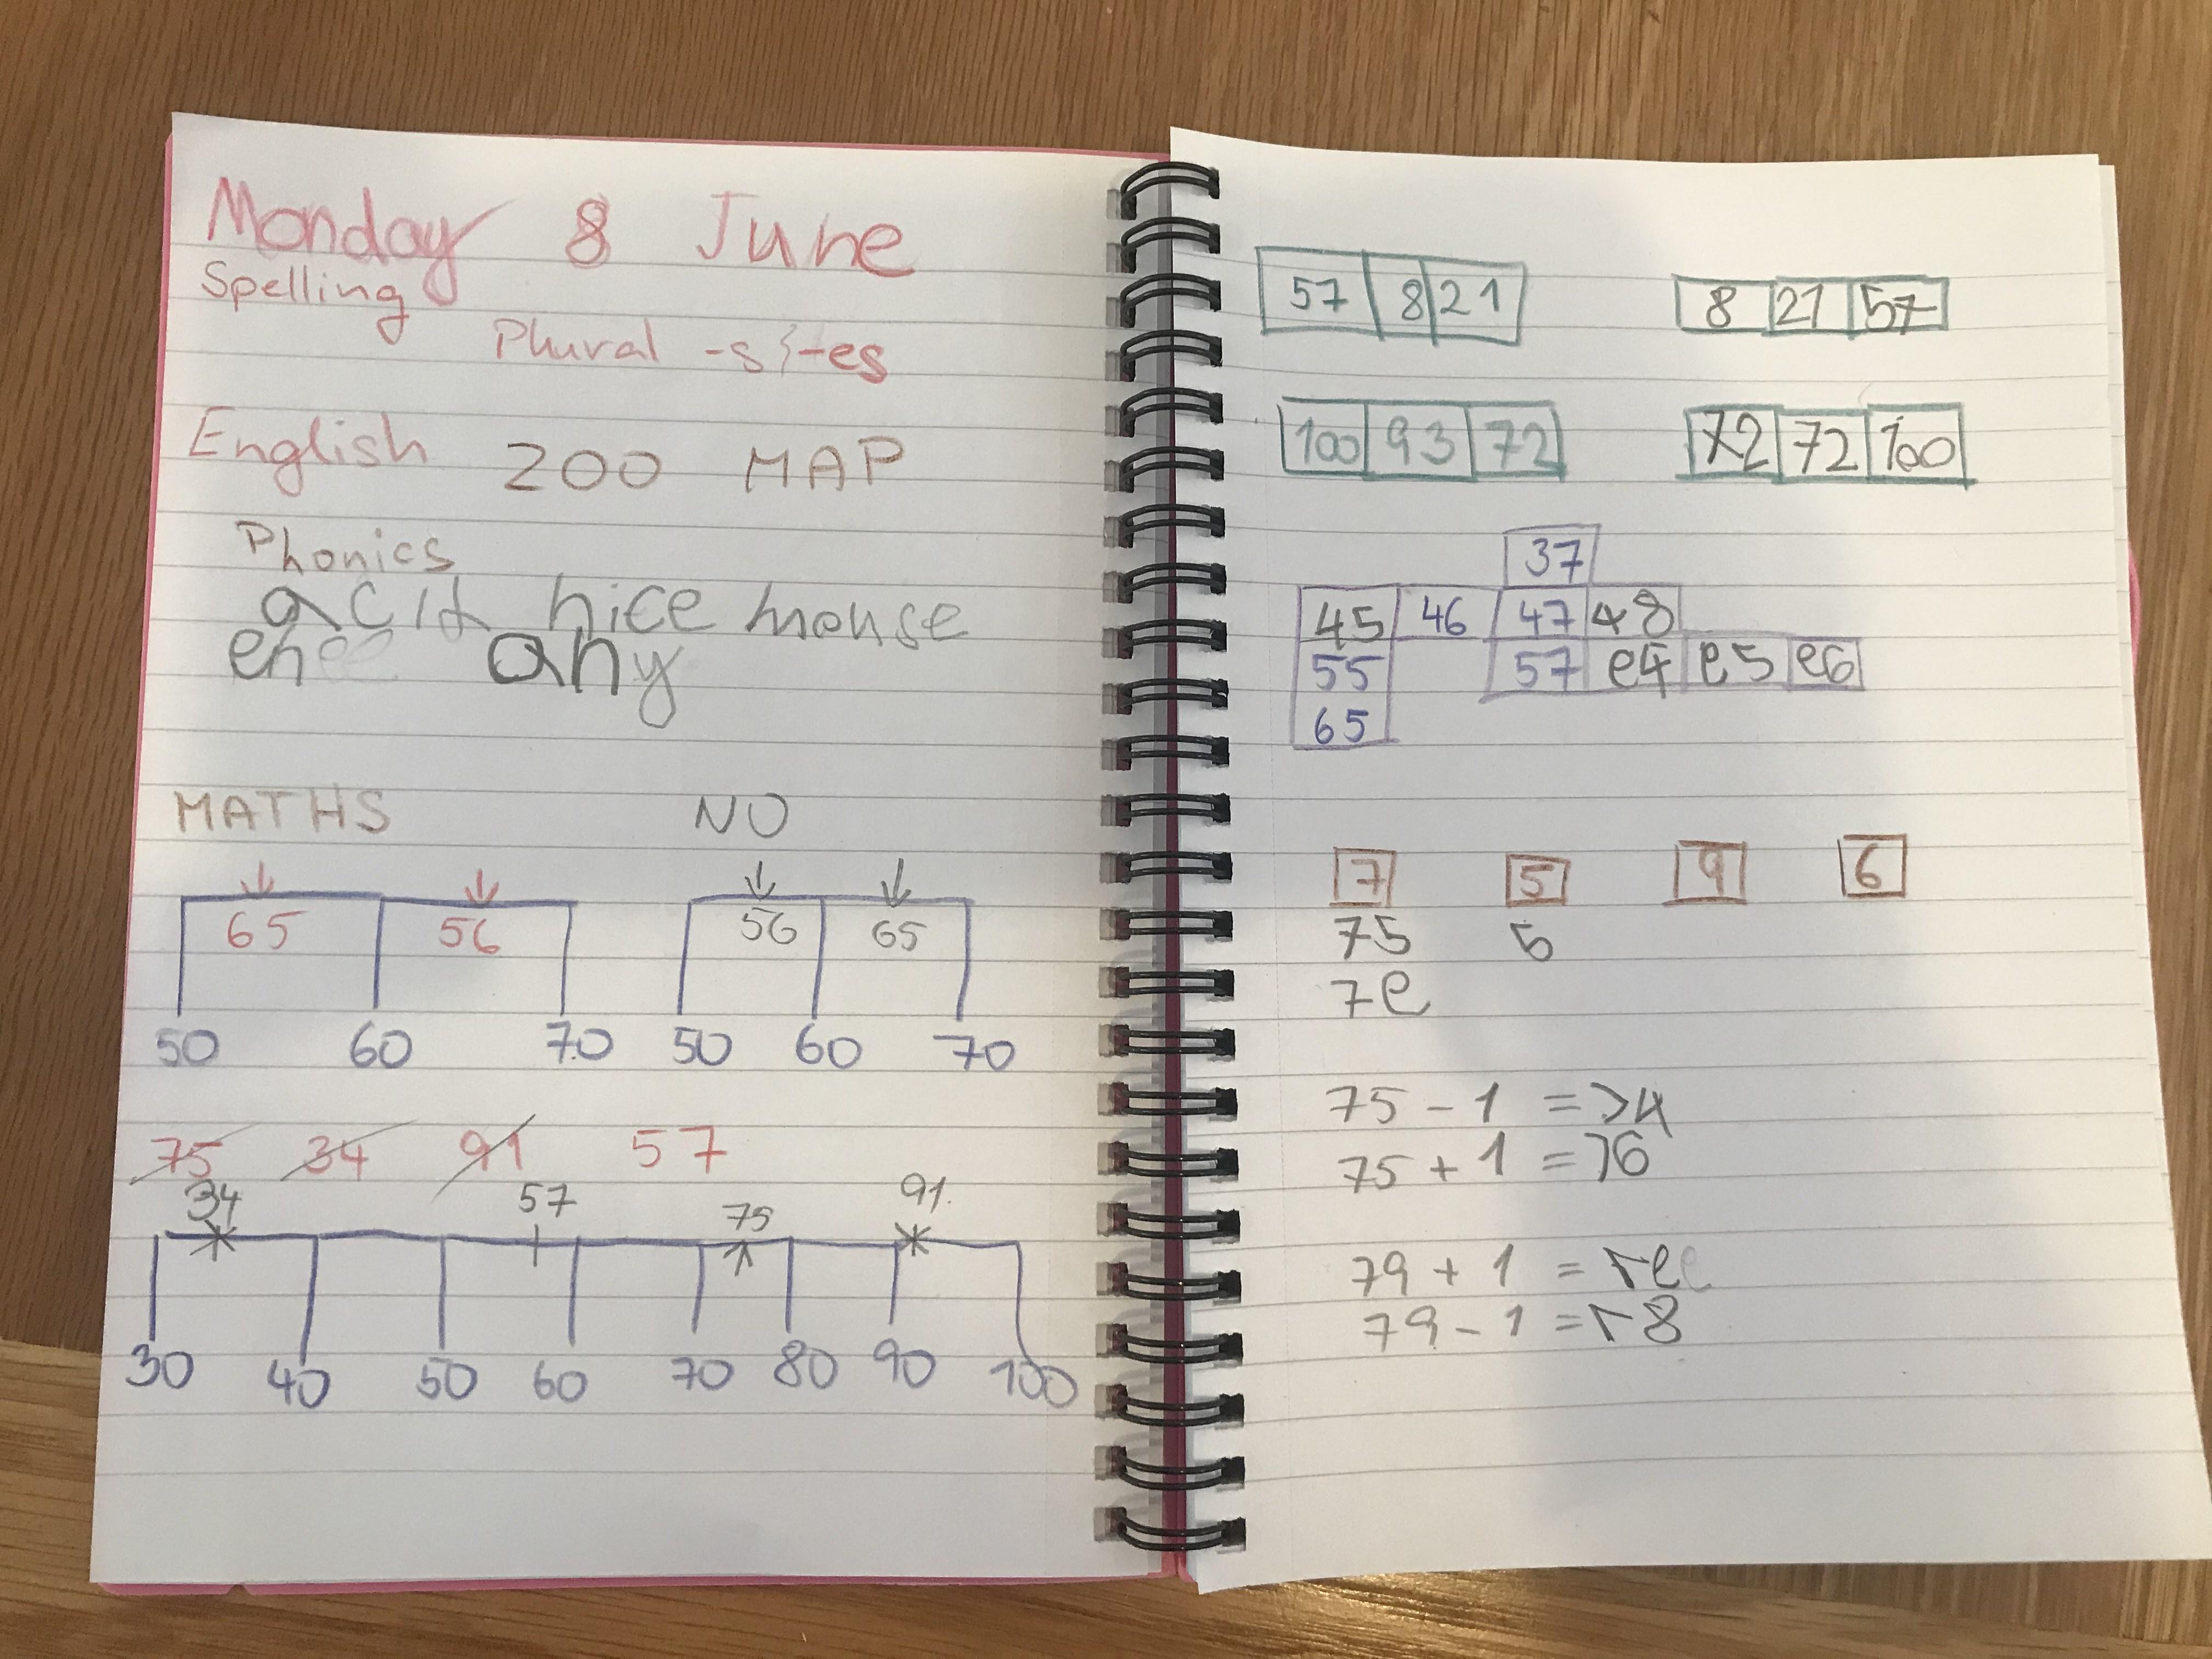 Monday 8 June
Spelling
Plural -s & -es
English ZOO MAP
Phonics
nice mouse
any
MATHS NO
65 56 56 65
50 60 70 50 60 70
75 34 91 57
34 57 75 91
30 40 50 60 70 80 90 100
57 8 21 8 21 57
100 93 72 72 72 100
37
45 46 47 48
55 57 e4 e5 e6
65
7 5 9 6
75 5
7e
75 - 1 = 74
75 + 1 = 76
79 + 1 =
79 - 1 = 78